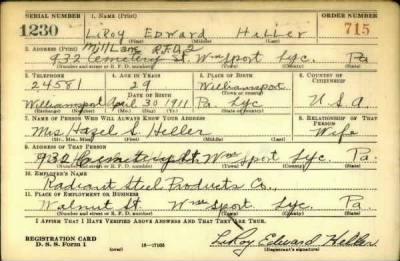 SERIAL NUMBER 1. NAME (Print) ORDER NUMBER
1230 LeRoy Edward Heller 715
(First) (Middle) (Last)
2. ADDRESS (Print) Mill Lane R.F.D. 2
932 Cemetery St. Wmsport Lyc. Pa
(Number and street or R. F. D. number) (Town) (County) (State)
3. TELEPHONE 4. AGE IN YEARS 5. PLACE OF BIRTH 6. COUNTRY OF CITIZENSHIP
24581 29 Williamsport
DATE OF BIRTH (Town or county)
Williamsport April 30 1911 Pa. Lyc U.S.A
(Exchange) (Number) (Mo.) (Day) (Yr.) (State or country)
7. NAME OF PERSON WHO WILL ALWAYS KNOW YOUR ADDRESS 8. RELATIONSHIP OF THAT PERSON
Mrs Hazel S. Heller Wife
(Mr., Mrs., Miss) (First) (Middle) (Last)
9. ADDRESS OF THAT PERSON
932 Cemetery St. Wmsport Lyc. Pa.
(Number and street or R. F. D. number) (Town) (County) (State)
10. EMPLOYER'S NAME
Radiant Steel Products Co.,
11. PLACE OF EMPLOYMENT OR BUSINESS
Walnut St. Wmsport Lyc. Pa.
(Number and street or R. F. D. number) (Town) (County) (State)
I AFFIRM THAT I HAVE VERIFIED ABOVE ANSWERS AND THAT THEY ARE TRUE.
REGISTRATION CARD
D. S. S. Form 1 (over) 16—17105 LeRoy Edward Heller
(Registrant's signature)